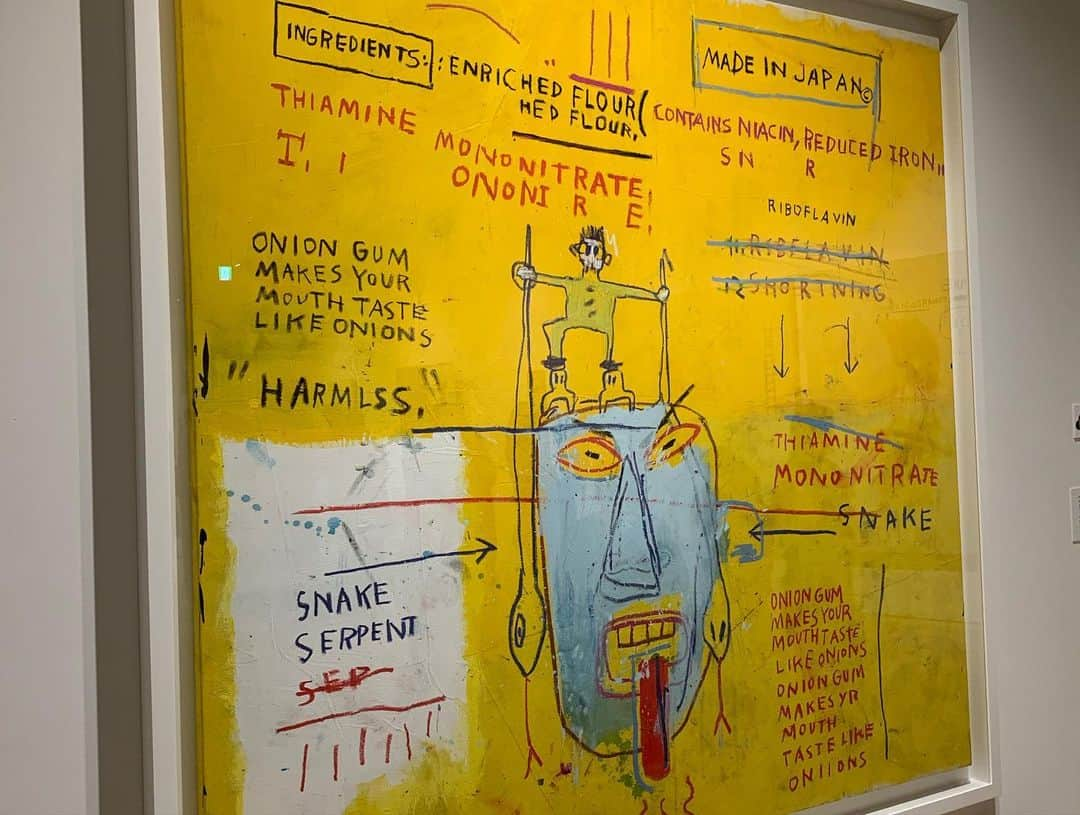 INGREDIENTS: : ENRICHED FLOUR (
HED FLOUR,
MADE IN JAPAN©
THIAMINE
MONONITRATE,
CONTAINS NIACIN, REDUCED IRON,,
T, I
ONONI R E!
SN R
RIBOFLAVIN
SHORTNING
ONION GUM
MAKES YOUR
MOUTH TASTE
LIKE ONIONS
"HARMLSS,"
THIAMINE
MONONITRATE
SNAKE
SNAKE
SERPENT
SEP
ONION GUM
MAKES YOUR
MOUTH TASTE
LIKE ONIONS
ONION GUM
MAKES YR
MOUTH
TASTE LIKE
ONIIONS